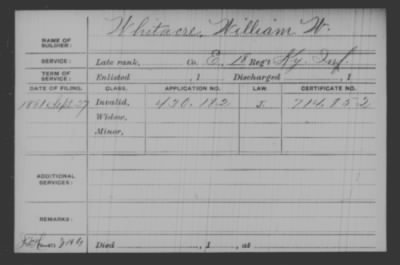 NAME OF SOLDIER: Whitacre, William W.
SERVICE: Late rank, Co. E, 18 Reg't Ky. Inf.
TERM OF SERVICE: Enlisted , 1 Discharged , 1
DATE OF FILING. CLASS. APPLICATION NO. LAW. CERTIFICATE NO.
1881 Sept. 27 Invalid, 430.192 714.852
Widow,
Minor,
ADDITIONAL SERVICES:
REMARKS:
Died , 1 , at